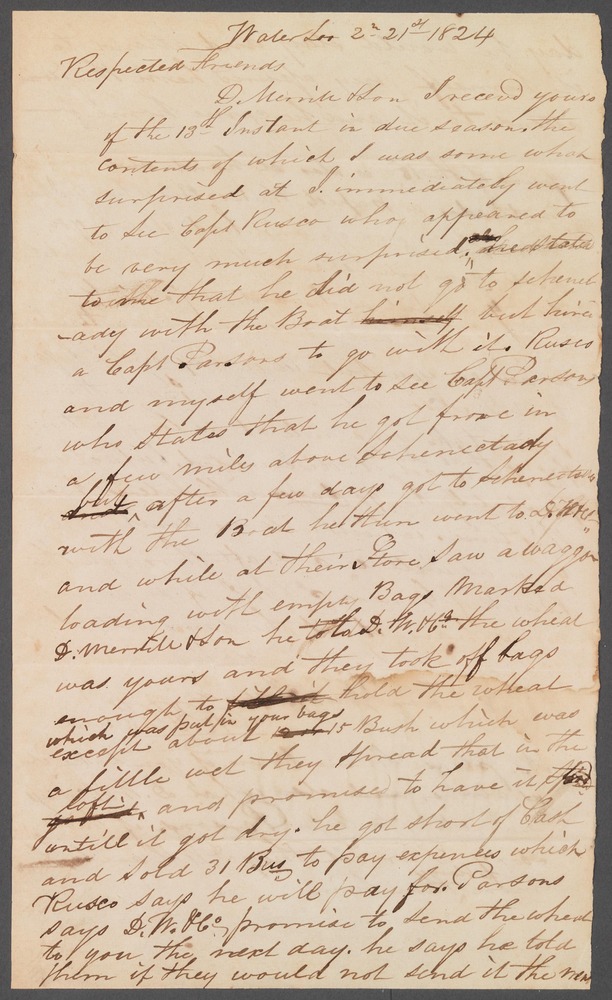 Waterloo 2n 21st 1824
Respected Friends
D. Merrill & Son I receivd yours
of the 13th Instant in due season, the
contents of which I was some what
surprised at I. immediately went
to see Capt Rusco who, appeared to
be very much surprised. he stated
to me that he did not go to schenect
-ady with the Boat himself but hired
a Capt Parsons to go with it. Rusco
and myself went to see Capt Parsons
who States that he got froze in
a few miles above Schenectady
but after a few days got to Schenectady
with the Boat he then went to D. W &Co
and while at their Store, Saw a waggon
loading with empty Bags Marked
D. Merrill & Son he told D. W. &Co the wheat
was yours and they took off bags
enough to hold the wheat
which was put in your bags
except about 15 Bush which was
a little wet they spread that in the
loft, and promised to have it
untill it got dry. he got short of Cash
and Sold 31 Bus to pay expences which
Rusco says he will pay for. Parsons
says D. W. &Co promise to send the wheat
to you the next day. he says he told
them if they would not send it the next